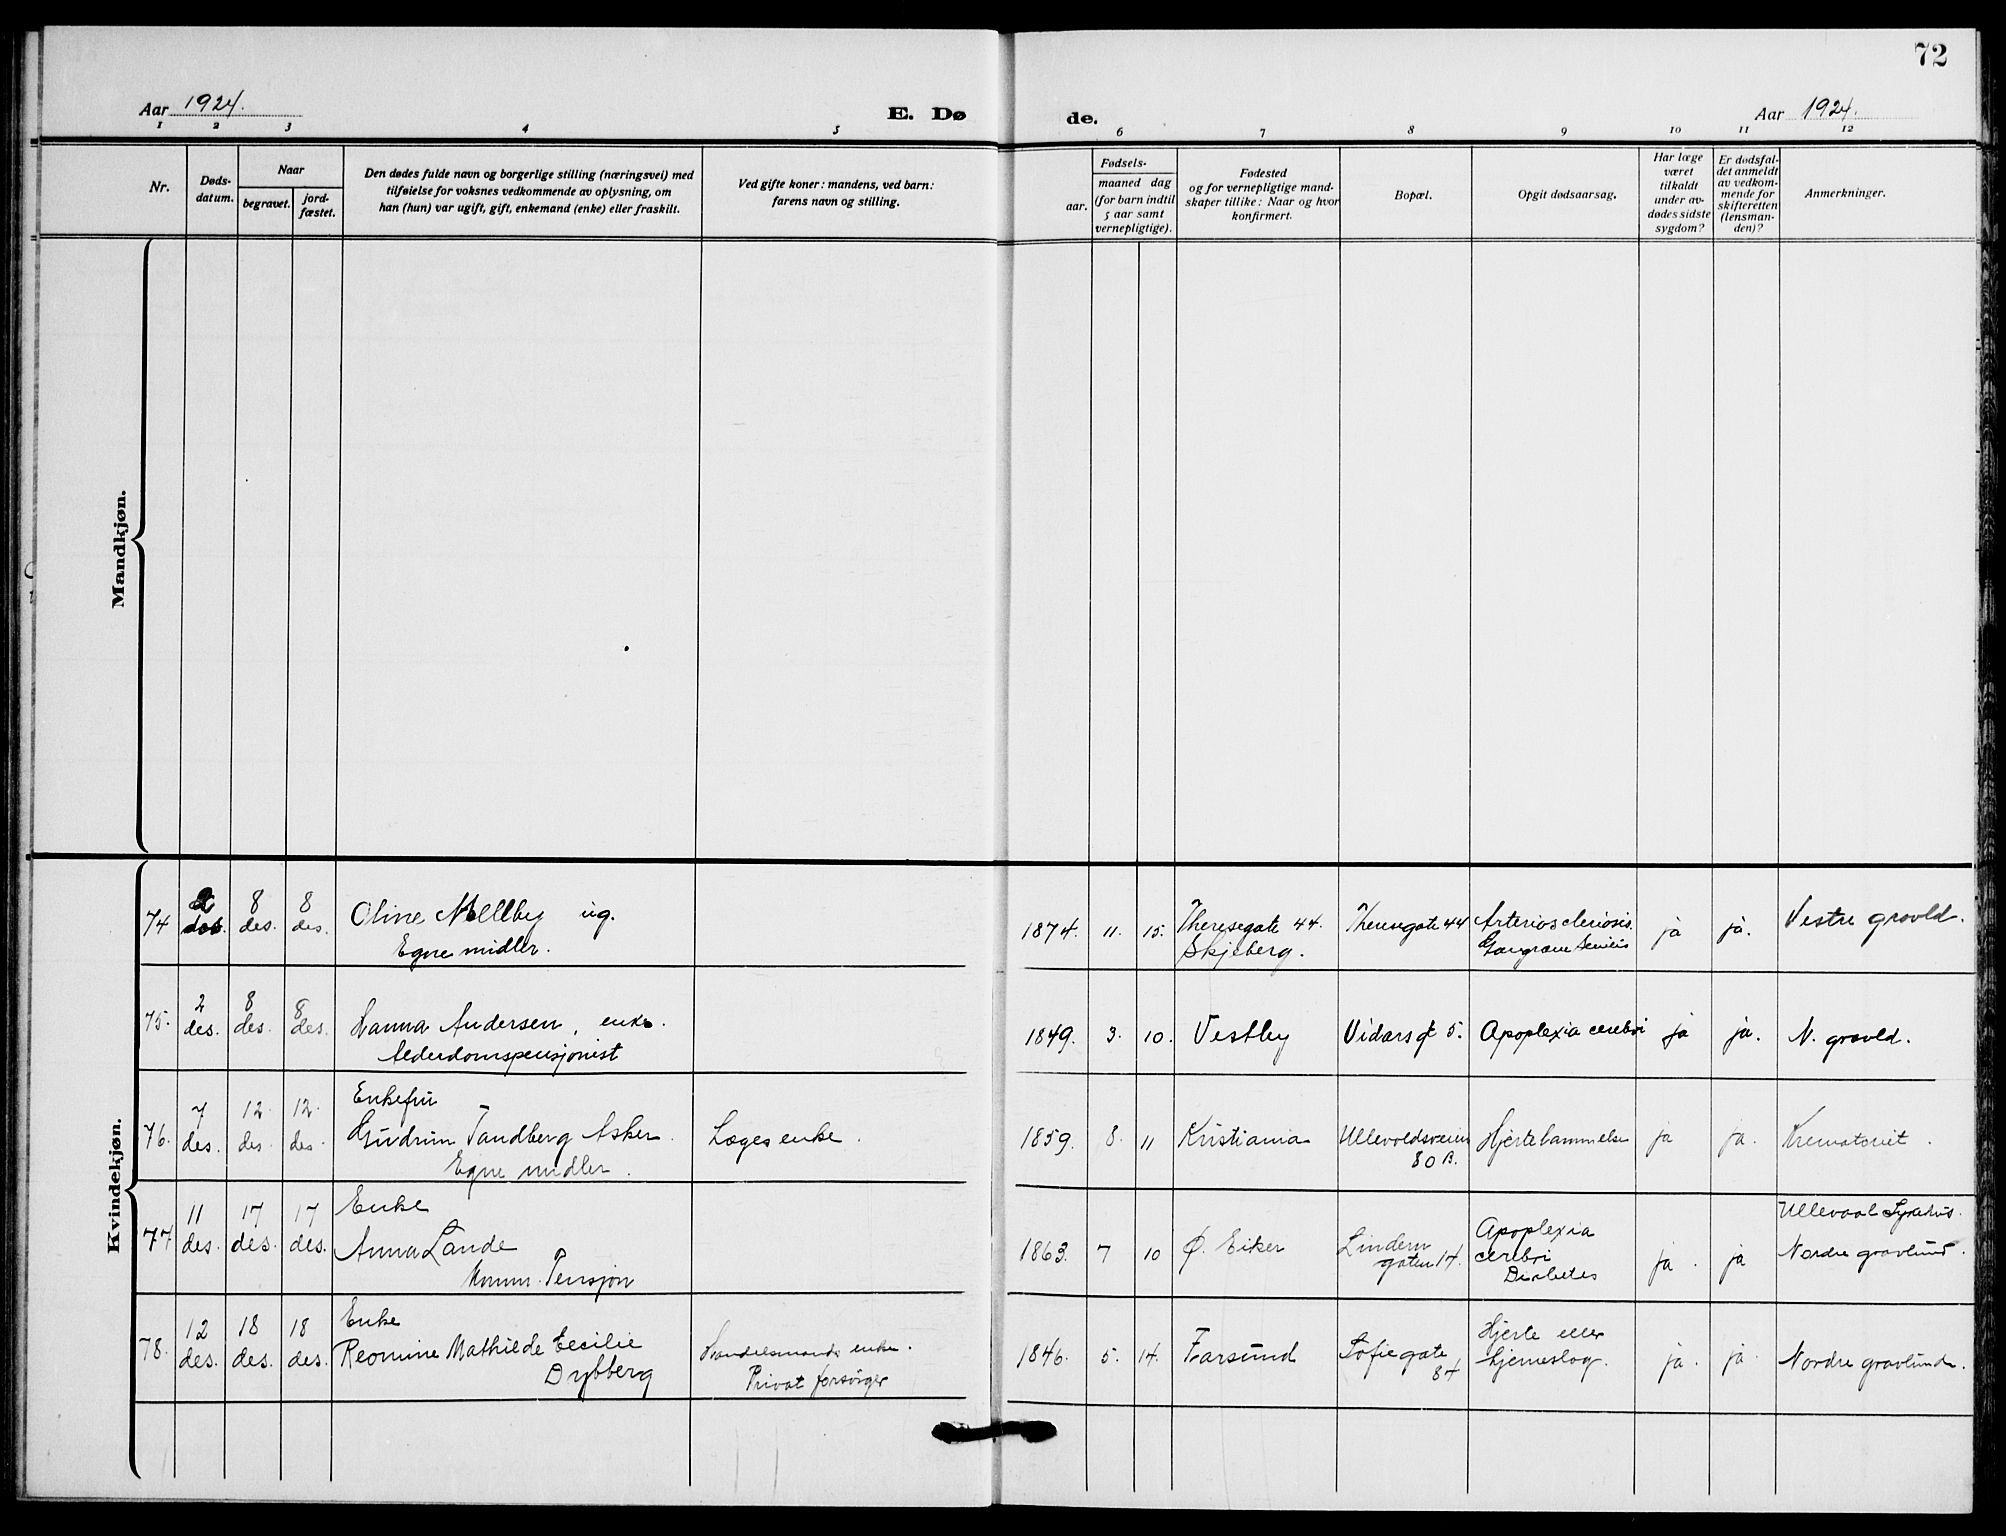 72
Aar 1924.
E. Dø
de.
Aar 1924.
1 2 3 4 5 6 7 8 9 10 11 12
Nr.
Døds-
datum.
Naar
begravet.
jord-
fæstet.
Den dødes fulde navn og borgerlige stilling (næringsvei) med
tilføielse for voksnes vedkommende av oplysning, om
han (hun) var ugift, gift, enkemand (enke) eller fraskilt.
Ved gifte koner: mandens, ved barn:
farens navn og stilling.
Fødsels-
aar.
maaned dag
(for barn indtil
5 aar samt
vernepligtige).
Fødested
og for vernepligtige mand-
skaper tillike: Naar og hvor
konfirmert.
Bopæl.
Opgit dødsaarsag.
Har læge
været
tilkaldt
under av-
dødes sidste
sygdom?
Er dødsfal-
det anmeldt
av vedkom-
mende for
skifteretten
(lensman-
den)?
Anmerkninger.
Mandkjøn.
Kvindekjøn.
74 2 des. 8 des. 8 des.
Oline Mellby ug.
Egne midler.
1874. 11. 15.
Theresegate 44.
Skjeberg.
Theresegate 44
Arteriosclerosis.
ja ja.
Vestre gravld.
75. 2 des. 8 des. 8 des.
Hanna Andersen, enke.
Alderdomspensjonist
1849. 3. 10.
Vestby
Vidars gt 5.
Apoplexia cerebri
ja ja.
N. gravld.
76. 7 des. 12 des. 12 des.
Enkefru
Gudrun Tandberg Asker.
Egne midler.
Læges enke.
1859. 8. 11
Kristiania
Ullevoldsveien
80 B.
Hjertelammelse
ja ja.
Krematoriet.
77 11 des. 17 des. 17 des.
Enke
Anna Lande
Komm. Pensjon
1863. 7 10
Ø. Eiker
Lindern
gaten 14.
Apoplexia
cerebri
Diabetes
ja. ja
Ullevaal Sykehus.
Nordre gravlund.
78. 12 des. 18 des. 18 des.
Enke
Reomine Mathilde Cecilie
Dybberg
Handelsmands enke.
Privat forsørget
1846. 5. 14.
Farsund
Sofiegate
84
Hjerte eller
hjerneslag.
ja. ja
Nordre gravlund.